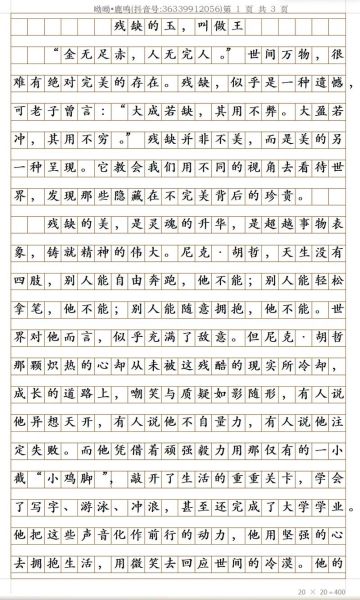 呦呦•鹿鸣(抖音号:36339912056)第 1 页 共 3 页
残缺的玉，叫做王
“金无足赤，人无完人。”世间万物，很
难有绝对完美的存在。残缺，似乎是一种遗憾，
可老子曾言：“大成若缺，其用不弊。大盈若
冲，其用不穷。”残缺并非不美，而是美的另
一种呈现。它教会我们用不同的视角去看待世
界，发现那些隐藏在不完美背后的珍贵。
残缺的美，是灵魂的升华，是超越事物表
象，铸就精神的伟大。尼克·胡哲，天生没有
四肢，别人能自由奔跑，他不能；别人能轻松
拿笔，他不能；别人能随意拥抱，他不能。世
界对他而言，似乎充满了敌意。但尼克·胡哲
那颗炽热的心却从未被这残酷的现实所冷却，
成长的道路上，嘲笑与质疑如影随形，有人说
他异想天开，有人说他不自量力，有人说他注
定失败。而他凭借着顽强毅力用那仅有的一小
截“小鸡脚”，敲开了生活的重重关卡，学会
了写字、游泳、冲浪，甚至还完成了大学学业。
他把这些声音化作前行的动力，他用坚强的心
去拥抱生活，用微笑去回应世间的冷漠。他的
20 × 20 = 400